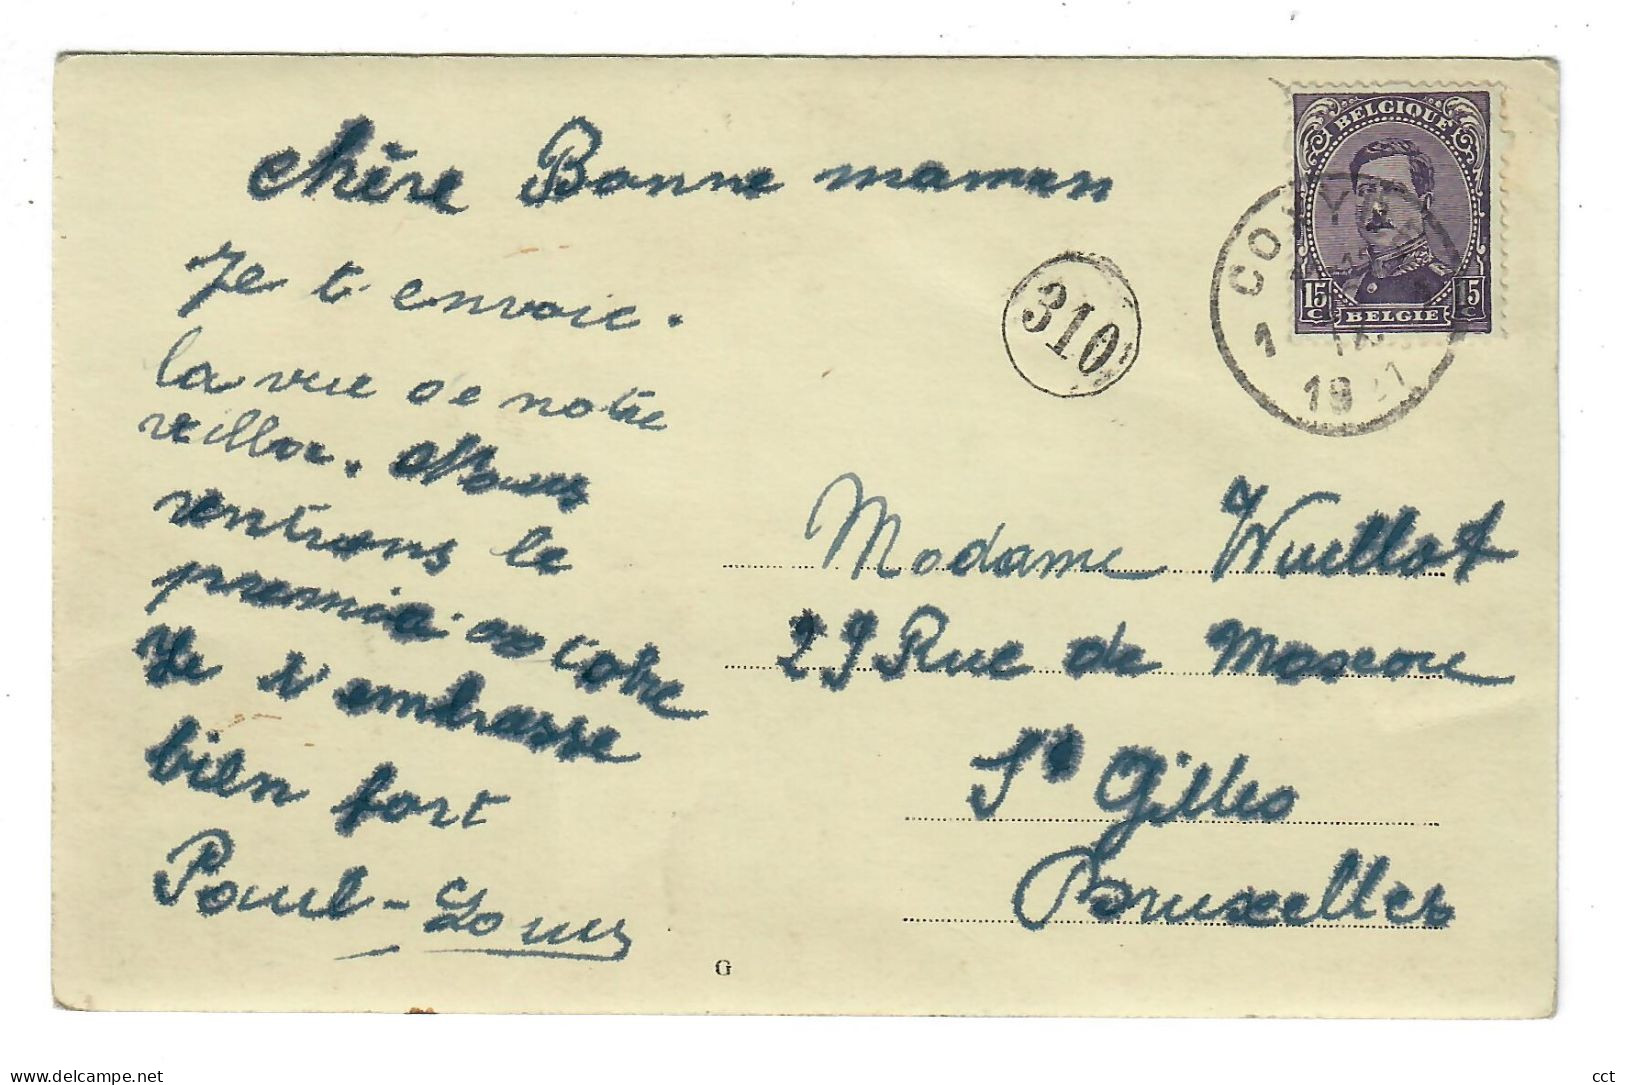 chère Bonne maman
Je t'envoie
la vue de notre
villa. Nous
rentrons le
premier octobre
Je t'embrasse
bien fort
Paul-Louis
BELGIQUE
15 c 15 c
BELGIE
1
19
310
Madame Wuillot
29 Rue de Moscou
St Gilles
Bruxelles
G
www.delcampe.net
cct